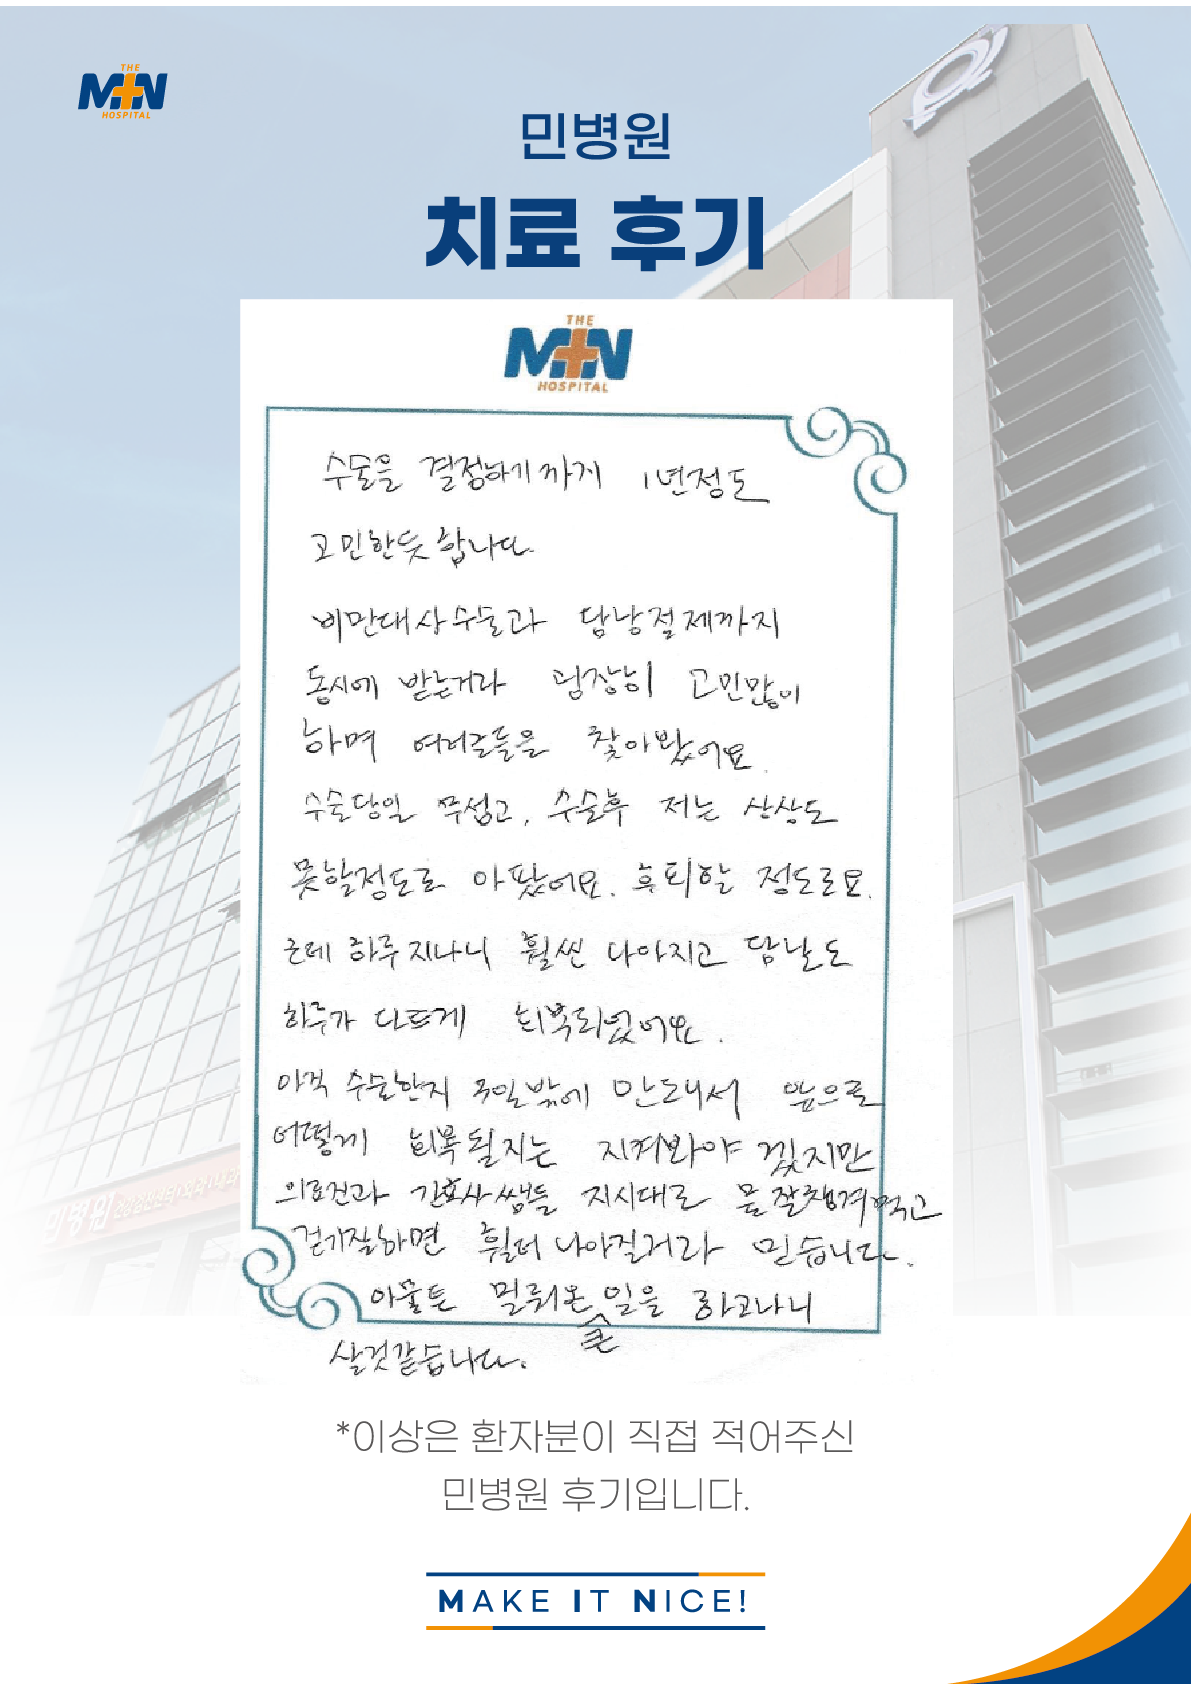 THE
MIN
HOSPITAL
민병원
치료 후기
THE
MIN
HOSPITAL
수술을 결정하기까지 1년정도
고민한듯 합니다
비만대상수술과 담낭절제까지
동시에 받는거라 굉장히 고민많이
하며 여러글들을 찾아봤어요.
수술당일 무섭고, 수술후 저는 상상도
못할정도로 아팠어요. 후회할 정도로요.
근데 하루지나니 훨씬 나아지고 담날도
하루가 다르게 회복되었어요.
아직 수술한지 주일밖에 안되서 앞으로
어떻게 회복될지는 지켜봐야 겠지만
의료진과 간호사쌤들 지시대로 물잘챙겨먹고
걷기잘하면 훨더 나아질거라 믿습니다.
아물튼 미뤄온 큰 일을 하고나니
살것같습니다.
민병원
*이상은 환자분이 직접 적어주신
민병원 후기입니다.
MAKE IT NICE!